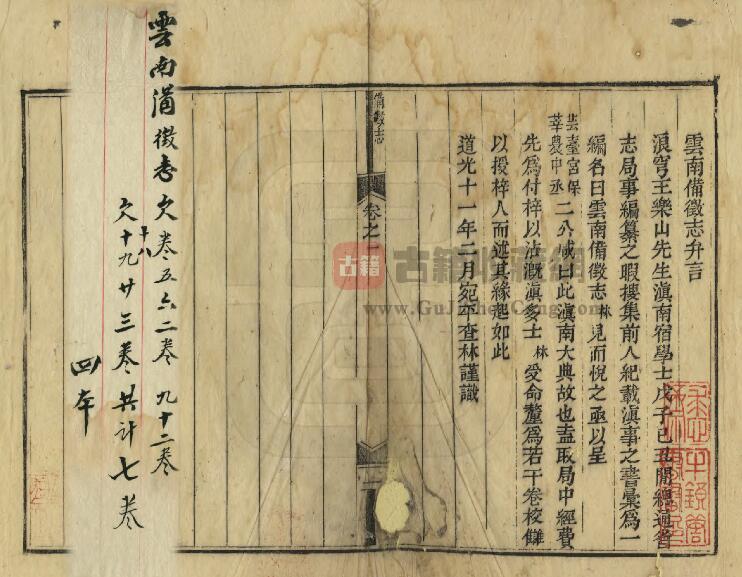 雲南備徵志弁言
浪穹王樂山先生滇南宿學士戊子己丑開總通省
志局事編纂之暇搜集前人紀載滇事之書彙爲一
編名曰雲南備徵志林見而悅之亟以呈
芸臺宮保
莘農中丞二公咸曰此滇南大典故也盍取局中經費
先爲付梓以沾溉滇多士林受命釐爲若干卷校讎
以授梓人而述其緣起如此
道光十一年二月宛平查林謹識
備徵志
卷之一
雲南備徵志欠卷五六二卷 九十二卷
欠十九廿三卷共計七卷
十八
四本
古籍
古籍收藏網
www.GuJiShouCang.com